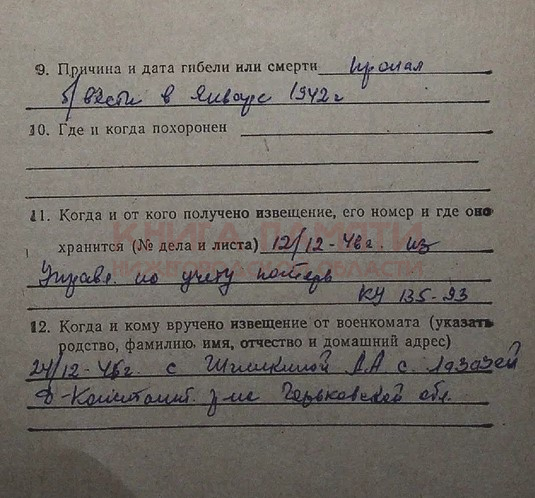 9. Причина и дата гибели или смерти пропал
б/вести в январе 1942 г
10. Где и когда похоронен
11. Когда и от кого получено извещение, его номер и где оно
хранится (№ дела и листа) 12/12-46 г. из
Управл. по учету потерь
КУ 135-93
12. Когда и кому вручено извещение от военкомата (указать
родство, фамилию, имя, отчество и домашний адрес)
24/12-46г. с А А с.
Д-Константин. р-на Горьковской обл.
КНИГА ПАМЯТИ
НИЖЕГОРОДСКОЙ ОБЛАСТИ